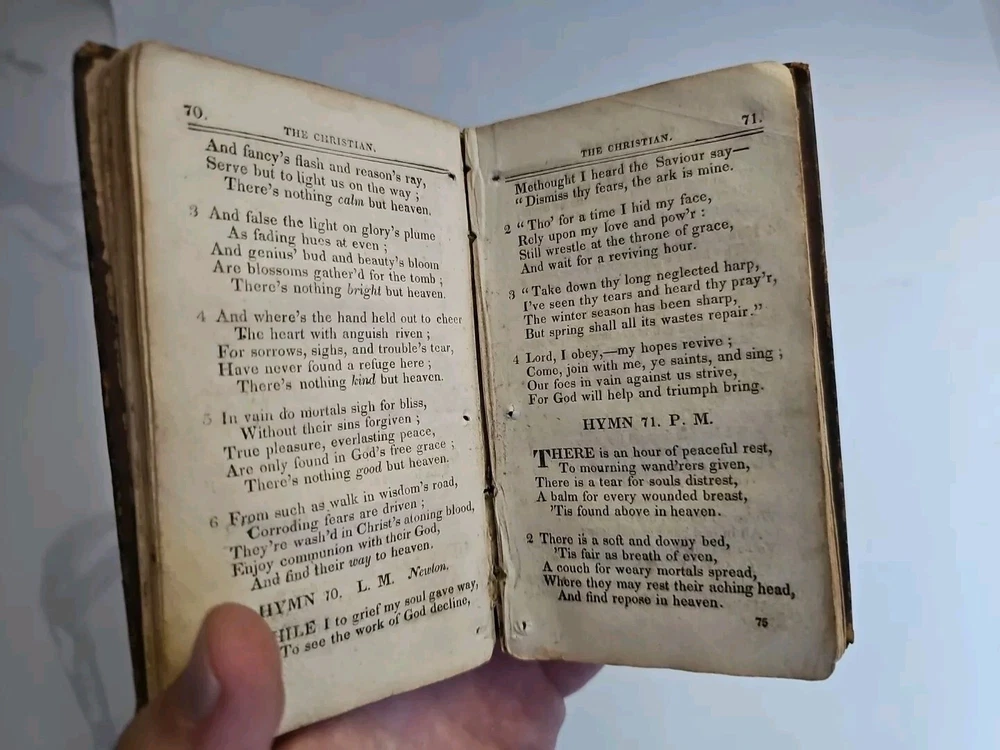 70.
THE CHRISTIAN.
And fancy's flash and reason's ray,
Serve but to light us on the way ;
There's nothing calm but heaven.
3 And false the light on glory's plume
As fading hues at even ;
And genius' bud and beauty's bloom
Are blossoms gather'd for the tomb ;
There's nothing bright but heaven.
4 And where's the hand held out to cheer
The heart with anguish riven ;
For sorrows, sighs, and trouble's tear,
Have never found a refuge here ;
There's nothing kind but heaven.
5 In vain do mortals sigh for bliss,
Without their sins forgiven ;
True pleasure, everlasting peace,
Are only found in God's free grace ;
There's nothing good but heaven.
6 From such as walk in wisdom's road,
Corroding fears are driven ;
They're wash'd in Christ's atoning blood,
Enjoy communion with their God,
And find their way to heaven.
HYMN 70. L. M. Newton.
HILE I to grief my soul gave way,
To see the work of God decline,
71.
THE CHRISTIAN.
Methought I heard the Saviour say—
"Dismiss thy fears, the ark is mine.
2 "Tho' for a time I hid my face,
Rely upon my love and pow'r :
Still wrestle at the throne of grace,
And wait for a reviving hour.
3 "Take down thy long neglected harp,
I've seen thy tears and heard thy pray'r,
The winter season has been sharp,
But spring shall all its wastes repair."
4 Lord, I obey,—my hopes revive ;
Come, join with me, ye saints, and sing ;
Our foes in vain against us strive,
For God will help and triumph bring.
HYMN 71. P. M.
THERE is an hour of peaceful rest,
To mourning wand'rers given,
There is a tear for souls distrest,
A balm for every wounded breast,
'Tis found above in heaven.
2 There is a soft and downy bed,
'Tis fair as breath of even,
A couch for weary mortals spread,
Where they may rest their aching head,
And find repose in heaven.
75